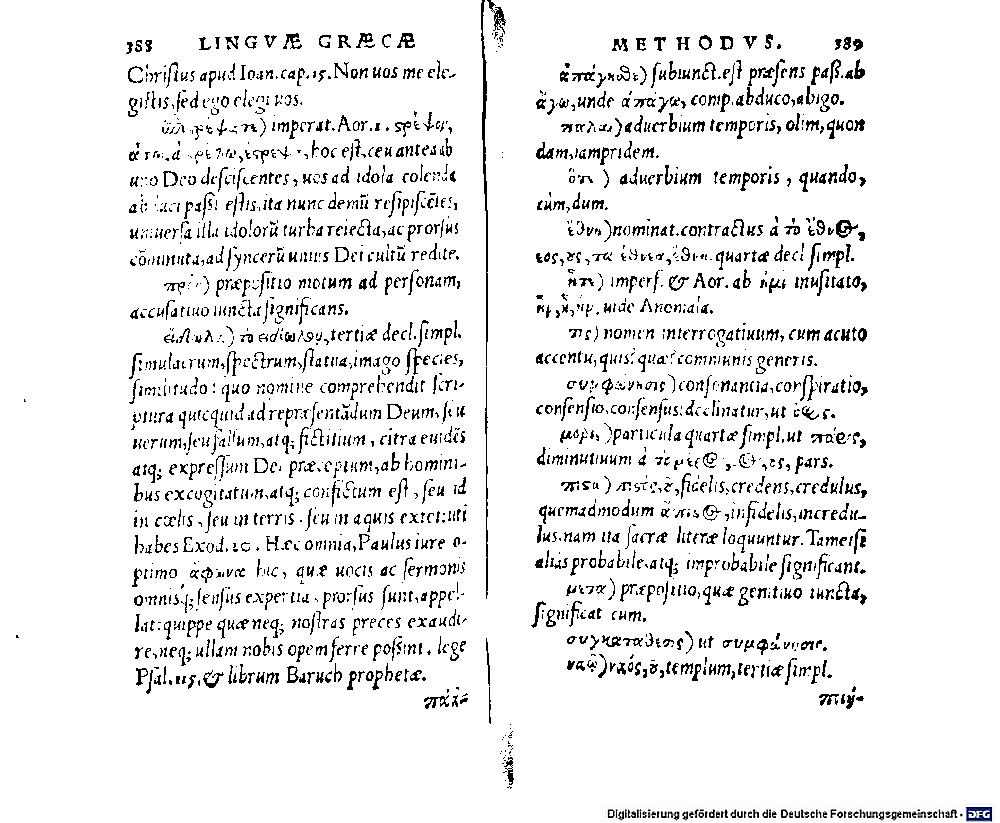 388 LINGVÆ GRÆCÆ
Christus apud Ioan. cap. 15. Non uos me ele-
gistis, sed ego elegi uos.
) imperat. Aor. 1. 
hoc est, ceu antea ab
uno Deo desciscentes, uos ad idola colenda
passi estis, ita nunc demũ resipiscẽtes,
uniuersa illa idolorũ turba reiecta, ac prorsus
ad synceru unius Dei cultũ redite.
πρὸς) præpositio motum ad personam,
accusatiuo iuncta significans.
εἴδωλα) τὸ εἴδωλον, tertiæ decl. simpl.
simulacrum, spectrum, statua, imago species,
similitudo: quo nomine comprehendit scri-
ptura quicquid ad repræsentãdum Deum, seu
uerum, seu falsum, atq; fictitium, citra euidẽs
atq; expressum Dei præceptum, ab homini-
bus excogitatum, atq; confictum est, seu id
in cœlis, seu in terris, seu in aquis extet: uti
habes Exod. 20. Hæc omnia, Paulus iure o-
ptimo ἄφωνα hic, quæ uocis ac sermonis
omnisq; sensus expertia prorsus sunt, appel-
lat: quippe quæ neq; nostras preces exaudi-
re, neq; ullam nobis opem ferre possint. lege
Psal. 115. & librum Baruch prophetæ.
πάλ-
METHODVS. 389
ἀπάγεσθε) subiunct. est præsens pass. ab
ἄγω, unde ἀπάγω, comp. abduco, abigo.
πάλαι) aduerbium temporis, olim, quon
dam, iampridem.
ὅτε) aduerbium temporis, quando,
cùm, dum.
ἔθνη) nominat. contractus à τὸ ἔθνος,
εος, ους, τὰ ἔθνεα, ἔθνη. quartæ decl simpl.
ἦτε) imperf. & Aor. ab inusitato,
uide Anomala.
τίς) nomen interrogatiuum, cum acuto
accentu, quis? quæ? communis generis.
συμφώνησις) consonantia, conspiratio,
consensio, consensus: declinatur, ut
μέρις) particula quartæ simpl. ut
diminutiuum à τὸ μέρος, εος, ους, pars.
πιστῷ) πιστός, οῦ, fidelis, credens, credulus,
quemadmodum ἄπιστος, infidelis, incredu-
lus. nam ita sacræ literæ loquuntur. Tametsi
aliàs probabile, atq; improbabile significant.
μετὰ) præpositio, quæ genitiuo iuncta,
significat cum.
συγκατάθεσις) ut συμφώνησις.
ναῷ) ναός, οῦ, templum, tertiæ simpl.
Digitalisierung gefördert durch die Deutsche Forschungsgemeinschaft - DFG